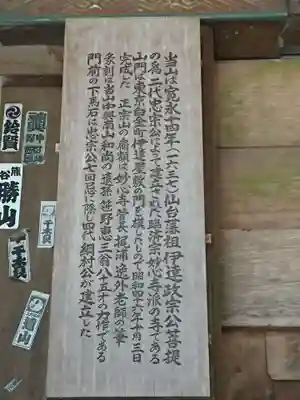 当山は寛永十四年(一六三七)仙台藩祖伊達政宗公菩提
の為二代忠宗公によって建立された臨済宗妙心寺派の寺である
山門は東京白金町伊達屋敷の門を模したもので昭和四十六年十月三日
完成した 正宗山の扁額は妙心寺管長梶浦逸外老師の筆
彫刻は当山中興南山和尚の遺孫笹野恵三翁八十五才の力作である
門前の下馬石は忠宗公七回忌に際し四代綱村公が建立した
鈴賀
熊谷
勝山